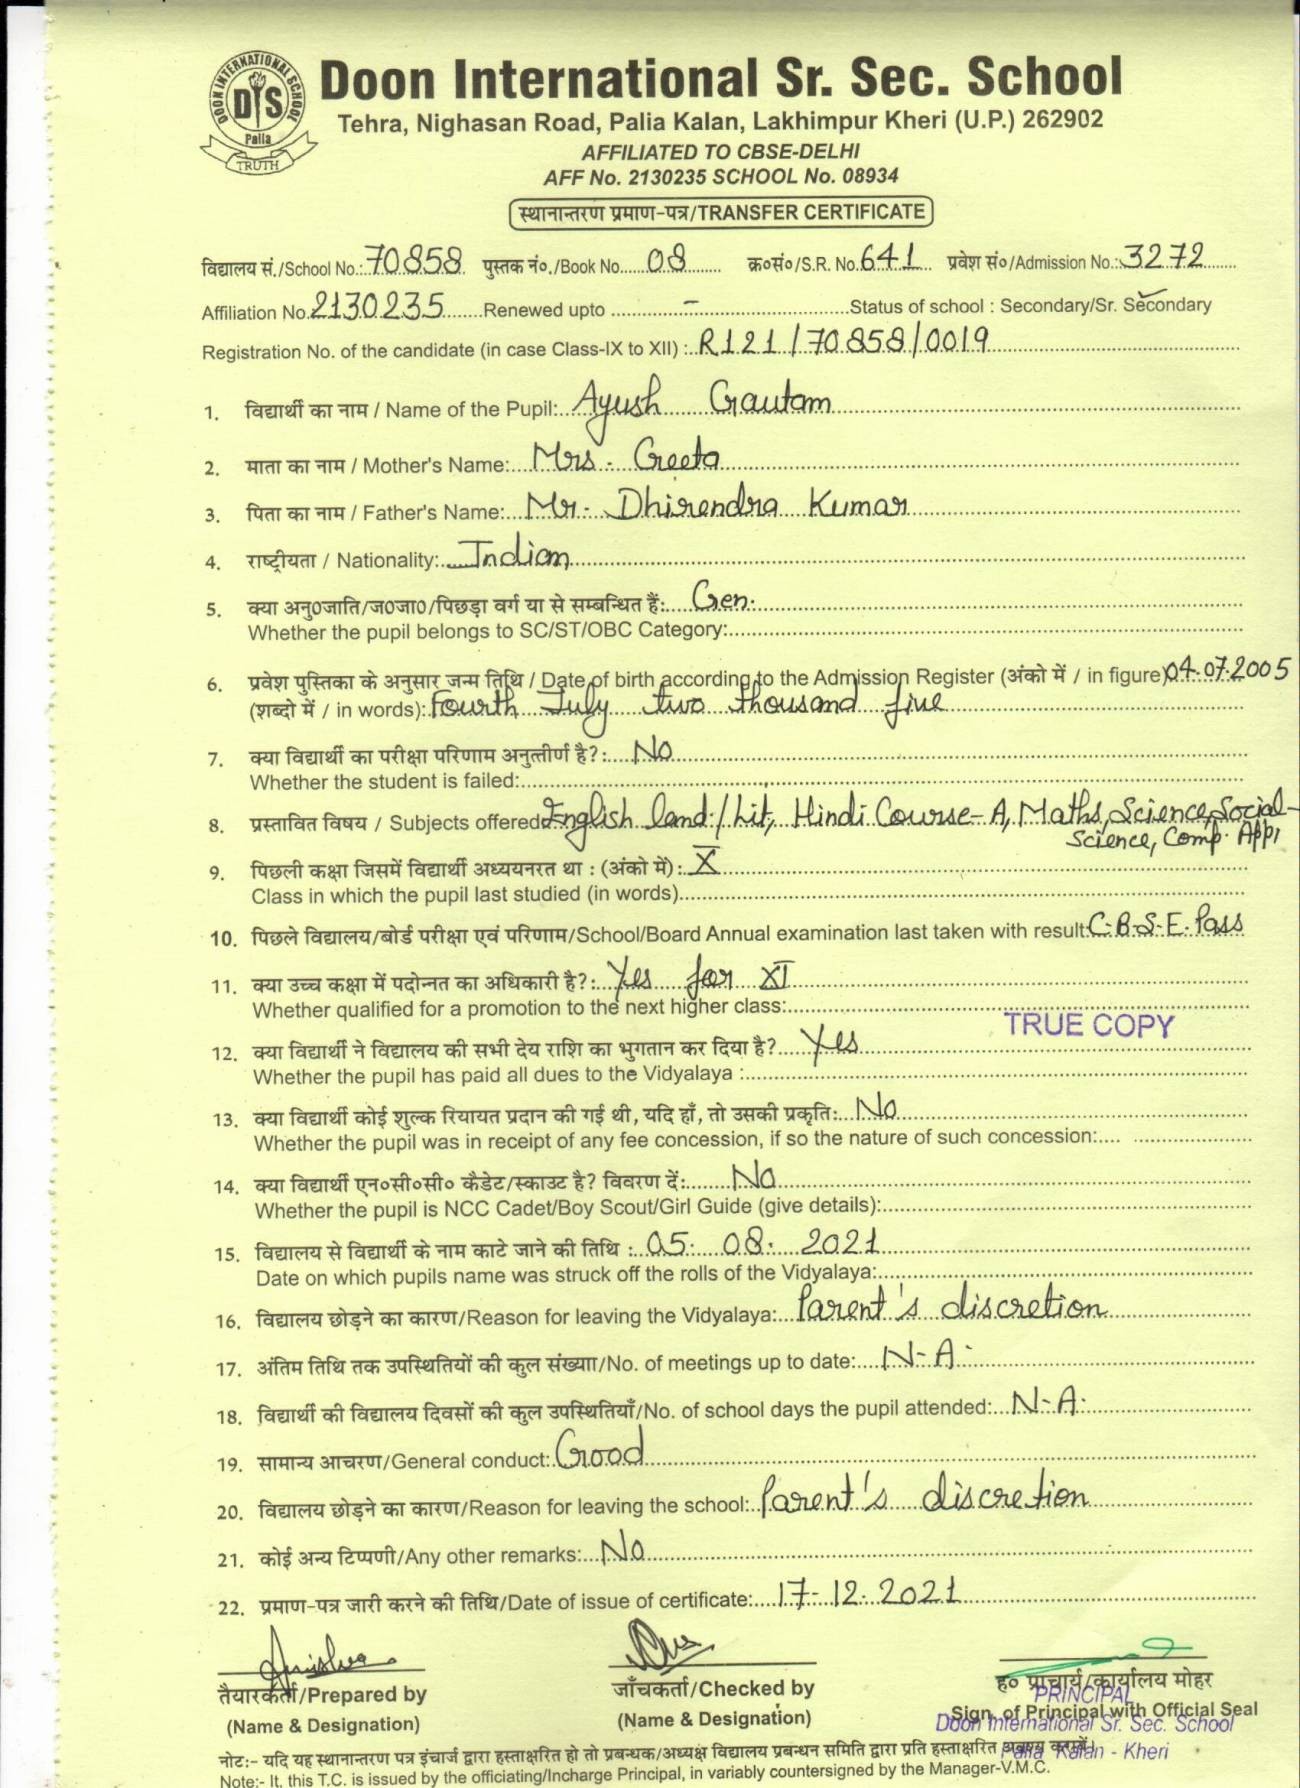 DOON INTERNATIONAL SCHOOL
DIS
Palia
TRUTH
Doon International Sr. Sec. School
Tehra, Nighasan Road, Palia Kalan, Lakhimpur Kheri (U.P.) 262902
AFFILIATED TO CBSE-DELHI
AFF No. 2130235 SCHOOL No. 08934
स्थानान्तरण प्रमाण-पत्र/TRANSFER CERTIFICATE
विद्यालय सं./School No.: 70858 पुस्तक नं०./Book No. 08 क्र०सं०/S.R. No. 641 प्रवेश सं०/Admission No.: 3272
Affiliation No. 2130235 Renewed upto - Status of school : Secondary/Sr. Secondary
Registration No. of the candidate (in case Class-IX to XII) : R121/70858/0019
1. विद्यार्थी का नाम / Name of the Pupil: Ayush Gautam
2. माता का नाम / Mother's Name: Mrs. Geeta
3. पिता का नाम / Father's Name: Mr. Dhirendra Kumar
4. राष्ट्रीयता / Nationality: Indian
5. क्या अनु0जाति/ज0जा0/पिछड़ा वर्ग या से सम्बन्धित हैं: Gen.
Whether the pupil belongs to SC/ST/OBC Category:
6. प्रवेश पुस्तिका के अनुसार जन्म तिथि / Date of birth according to the Admission Register (अंको में / in figure) 04.07.2005
(शब्दो में / in words): Fourth July two thousand five
7. क्या विद्यार्थी का परीक्षा परिणाम अनुत्तीर्ण है?: No
Whether the student is failed:
8. प्रस्तावित विषय / Subjects offered: English Land/Lit, Hindi Course-A, Maths, Science, Social-
Science, Comp. App,
9. पिछली कक्षा जिसमें विद्यार्थी अध्ययनरत था : (अंको में): X
Class in which the pupil last studied (in words)
10. पिछले विद्यालय/बोर्ड परीक्षा एवं परिणाम/School/Board Annual examination last taken with result: C.B.S.E. Pass
11. क्या उच्च कक्षा में पदोन्नत का अधिकारी है?: Yes for XI
Whether qualified for a promotion to the next higher class:
TRUE COPY
12. क्या विद्यार्थी ने विद्यालय की सभी देय राशि का भुगतान कर दिया है? Yes
Whether the pupil has paid all dues to the Vidyalaya :
13. क्या विद्यार्थी कोई शुल्क रियायत प्रदान की गई थी, यदि हाँ, तो उसकी प्रकृति: No
Whether the pupil was in receipt of any fee concession, if so the nature of such concession:
14. क्या विद्यार्थी एन०सी०सी० कैडेट/स्काउट है? विवरण दें: No
Whether the pupil is NCC Cadet/Boy Scout/Girl Guide (give details):
15. विद्यालय से विद्यार्थी के नाम काटे जाने की तिथि : 05. 08. 2021
Date on which pupils name was struck off the rolls of the Vidyalaya:
16. विद्यालय छोड़ने का कारण/Reason for leaving the Vidyalaya: Parent's discretion
17. अंतिम तिथि तक उपस्थितियों की कुल संख्या/No. of meetings up to date: N-A-
18. विद्यार्थी की विद्यालय दिवसों की कुल उपस्थितियाँ/No. of school days the pupil attended: N-A-
19. सामान्य आचरण/General conduct: Good
20. विद्यालय छोड़ने का कारण/Reason for leaving the school: Parent's discretion
21. कोई अन्य टिप्पणी/Any other remarks: No
22. प्रमाण-पत्र जारी करने की तिथि/Date of issue of certificate: 17-12-2021
तैयारकर्ता/Prepared by जाँचकर्ता/Checked by ह० प्राचार्य/कार्यालय मोहर
PRINCIPAL
(Name & Designation) (Name & Designation) Sign. of Principal with Official Seal
Doon International Sr. Sec. School
Palia Kalan - Kheri
नोट:- यदि यह स्थानान्तरण पत्र इंचार्ज द्वारा हस्ताक्षरित हो तो प्रबन्धक/अध्यक्ष विद्यालय प्रबन्धन समिति द्वारा प्रति हस्ताक्षरित अवश्य करायें।
Note:- It, this T.C. is issued by the officiating/Incharge Principal, in variably countersigned by the Manager-V.M.C.